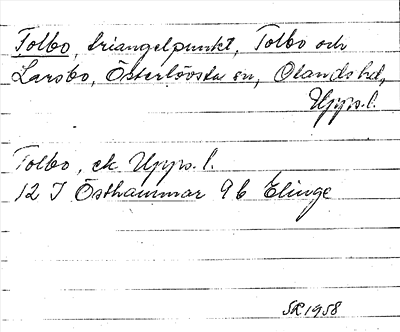 Tolbo, triangelpunkt, Tolbo och
Larsbo, Österlövsta sn, Olands hd,
Upps. l.
Tolbo, ek. Upps. l.
12 I Östhammar 9 b Elinge
SR 1958